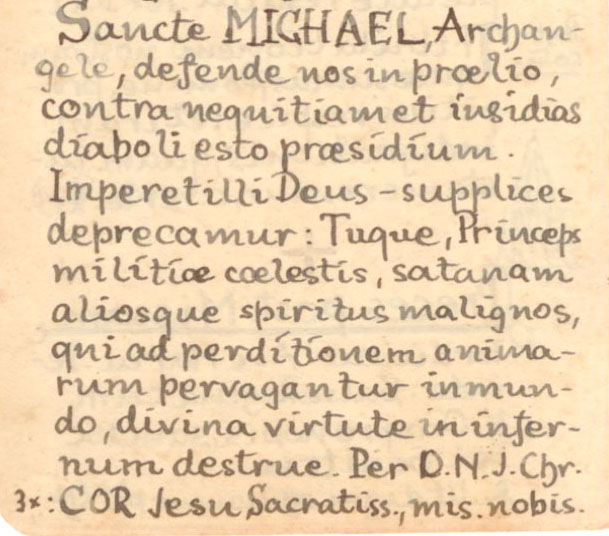 Sancte MICHAEL, Archan-
gele, defende nos in prœlio,
contra nequitiam et insidias
diaboli esto præsidium.
Imperet illi Deus - supplices
deprecamur: Tuque, Princeps
militiæ cœlestis, satanam
aliosque spiritus malignos,
qui ad perdítionem anima-
rum pervagantur in mun-
do, divina virtute in infer-
num destrue. Per D.N.J.Chr.
3x: COR Jesu Sacratiss., mis. nobis.